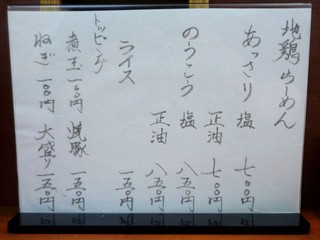 地鶏らーめん
あっさり 塩 七〇〇円
正油 七〇〇円
のうこう 塩 八五〇円
正油 八五〇円
ライス 一五〇円
トッピング
煮玉 一〇〇円 焼豚 一五〇円
ねぎ 一〇〇円 大盛り 一五〇円